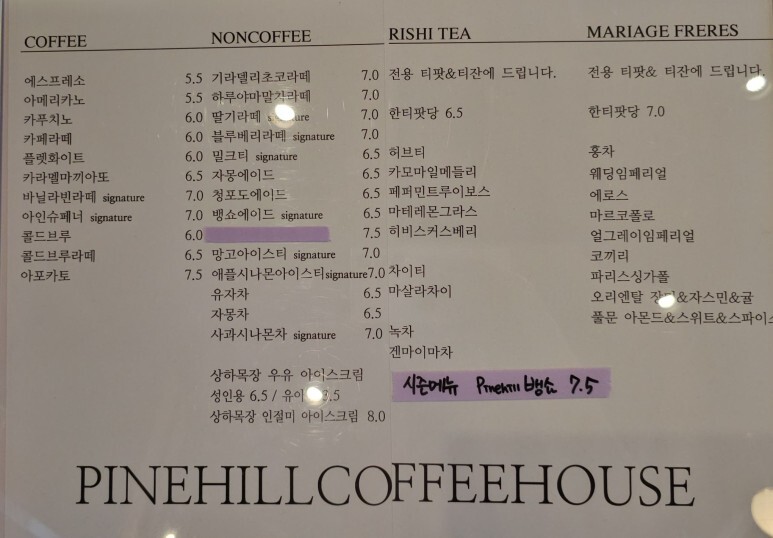 COFFEE
에스프레소 5.5
아메리카노 5.5
카푸치노 6.0
카페라떼 6.0
플렛화이트 6.0
카라멜마끼아또 6.5
바닐라빈라떼 signature 7.0
아인슈페너 signature 7.0
콜드브루 6.0
콜드브루라떼 6.5
아포카토 7.5
NONCOFFEE
기라델리초코라떼 7.0
하루야마말차라떼 7.0
딸기라떼 signature 7.0
블루베리라떼 signature 7.0
밀크티 signature 6.5
자몽에이드 6.5
청포도에이드 6.5
뱅쇼에이드 signature 6.5
7.5
망고아이스티 signature 7.0
애플시나몬아이스티signature7.0
유자차 6.5
자몽차 6.5
사과시나몬차 signature 7.0
상하목장 우유 아이스크림
성인용 6.5 / 유아 3.5
상하목장 인절미 아이스크림 8.0
RISHI TEA
전용 티팟&티잔에 드립니다.
한티팟당 6.5
허브티
카모마일메들리
페퍼민트루이보스
마테레몬그라스
히비스커스베리
차이티
마살라차이
녹차
겐마이마차
시즌메뉴 Pinehill 뱅쇼 7.5
MARIAGE FRERES
전용 티팟& 티잔에 드립니다.
한티팟당 7.0
홍차
웨딩임페리얼
에로스
마르코폴로
얼그레이임페리얼
코끼리
파리스싱가폴
오리엔탈 &자스민&귤
풀문 아몬드&스위트&스파이스
PINEHILLCOFFEEHOUSE